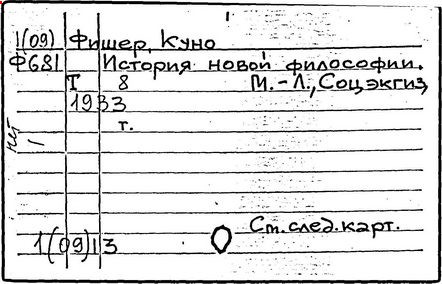 1(09) Фишер, Куно
Ф681 История новой философии.
Т 8 М.-Л., Соцэкгиз,
1933
т.
нет
1
См. след. карт.
1(09)13